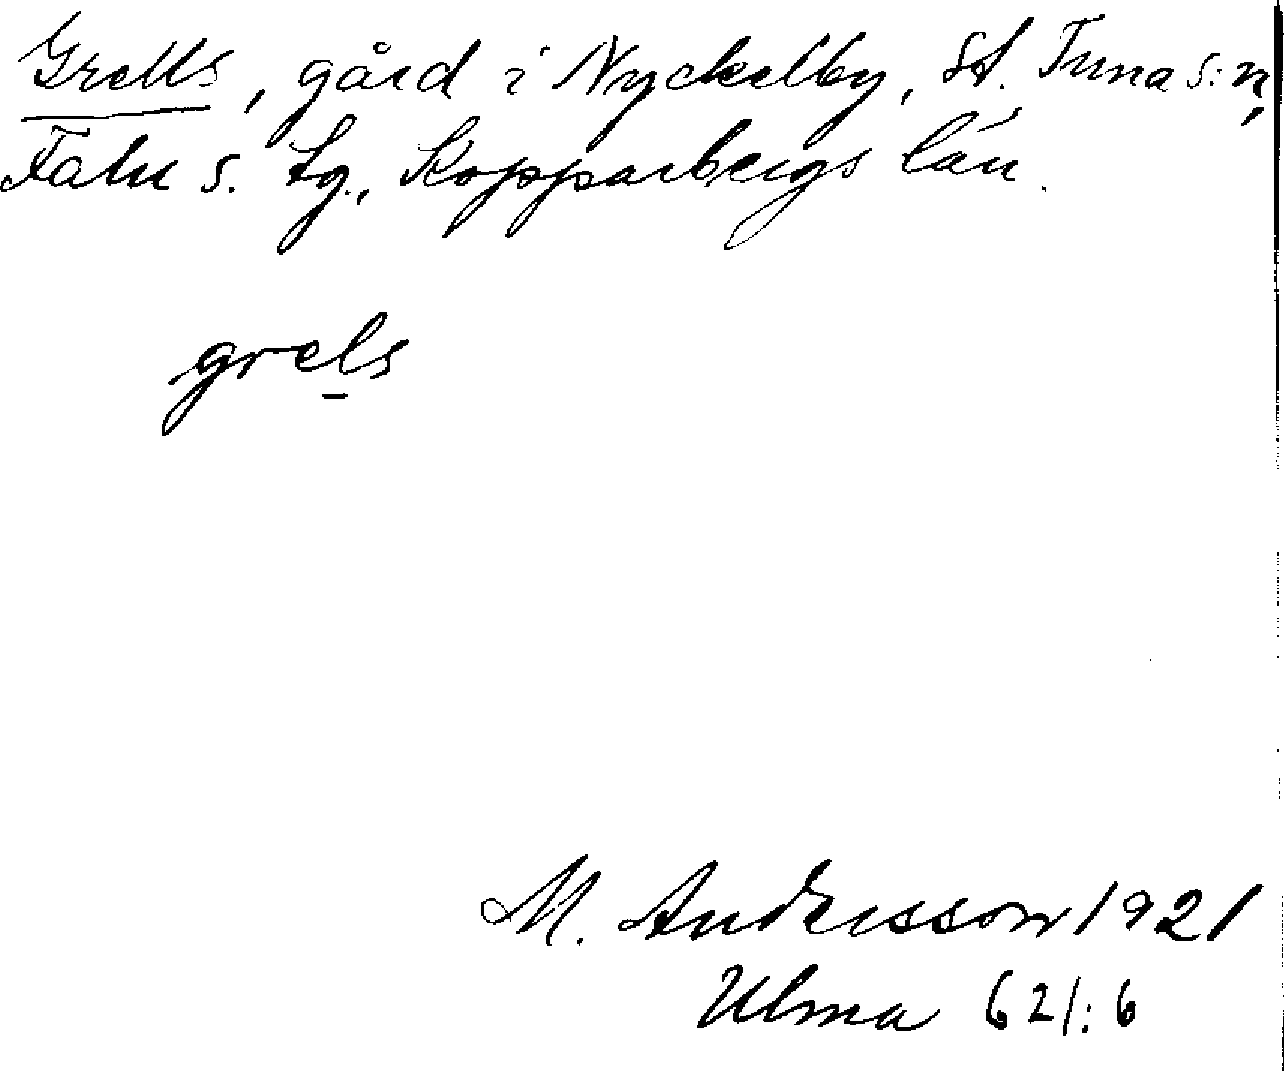 Grells, gård i Nyckelby, St. Tuna s:n,
Falu s. tg., Kopparbergs län.
grels
M. Andersson 1921
Ulma 621:6